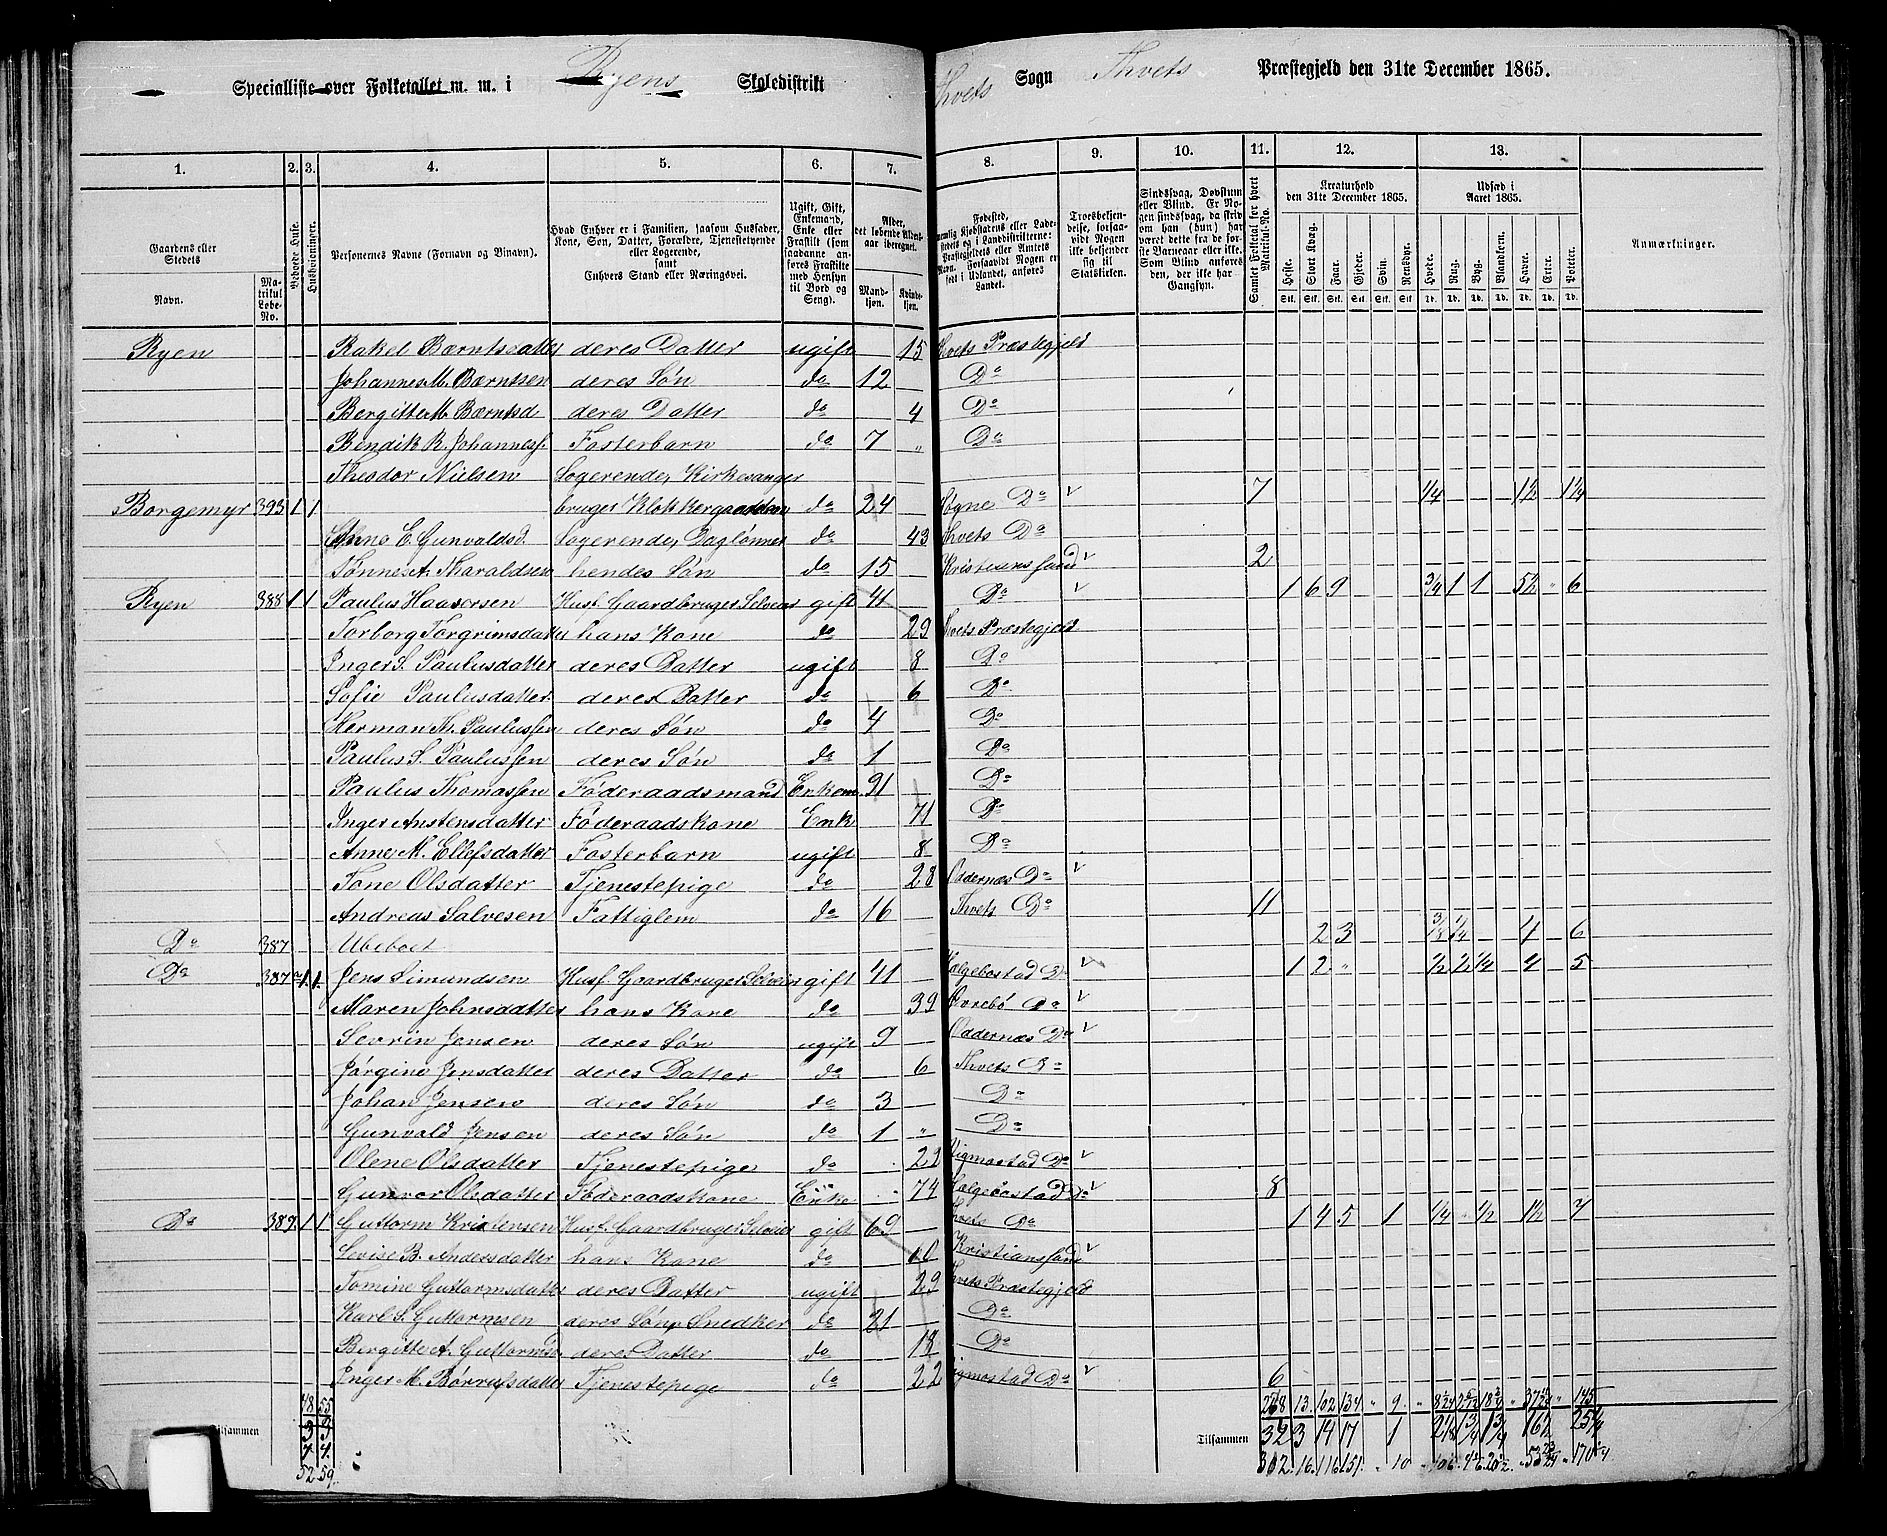 Specialliste over Folketallet m. m. i Ryens Skoledistrikt Thvets Sogn Thvets Præstegjeld den 31te December 1865.
1. 2. 3. 4. 5. 6. 7. 8. 9. 10. 11. 12. 13.
Gaardens eller Stedets Navn. Matrikul Løbe-No. Beboede Huse. Husholdninger. Personernes Navne (Fornavn og Binavn). Hvad Enhver er i Familien, saasom Husfader, Kone, Søn, Datter, Forældre, Tjenestetyende eller Logerende, samt Enhvers Stand eller Næringsvei. Alder, det løbende Aldersaar iberegnet. Mandkjøn. Kvindekjøn.
Samlet Folketal for hvert Matrikul-No. Kreaturhold den 31te December 1865. Heste. Stort Kvæg. Faar. Gjeder. Svin. Rensdyr. Udsæd i Aaret 1865. Hvede. Rug. Byg. Blandkorn. Havre. Erter. Poteter. Anmærkninger.
Ryen Rakel Bærntsdatter deres Datter ugift 15 Thvets Præstegjeld
Johannes M. Bærntsen deres Søn do 12 Do
Bergitte M. Bærntsd deres Datter do 4 Do
Bendik R. Johanness. Fosterbarn do 7 " Do
Theodor Nielsen Logerende, Kirkesanger
Borgemyr 393 1 1 bruger Klokkergaarden do 24 Søgne Do v 7 1/4 1 1/2 1 1/4
Anne E. Gunvaldsd. Logerende, Daglønner do 43 Thvets Do
Tønnes A. Tharaldsen hendes Søn do 15 Kristiansand v 2
Ryen 388 1 1 Paulus Haaversen Husf. Gaardbruger Selveier gift 41 Do v 1 6 9 3/4 1 1 5 1/2 " 6
Torborg Torgrimsdatter hans Kone do 29 Thvets Præstegjeld
Inger S. Paulusdatter deres Datter ugift 8 Do
Sofie Paulusdatter deres Datter do 6 Do
Herman Th. Paulussen deres Søn do 4 Do
Paulus S. Paulussen deres Søn do 1 Do
Paulus Thomassen Føderaadsmand Enkem 91 Do
Inger Anstensdatter Føderaadskone Enk 71 Do
Anne M. Ellefsdatter Fosterbarn ugift 8 Do
Tone Olsdatter Tjenestepige do 28 Oddernæs Do v
Andreas Salvesen Fattiglem do 16 Thvets Do 11
Do 387 Ubeboet 2 3 3/8 1/4 4 6
Do 387 a 1 1 Jens Simundsen Husf. Gaardbruger Selveier gift 41 Hægebostad Do v 1 2 " 1/2 1/2 1/4 4 5
Maren Johnsdatter hans Kone do 39 Øvrebø Do v
Sevrin Jensen deres Søn ugift 9 Oddernæs Do v
Jørgine Jensdatter deres Datter do 6 Thvets Do
Johan Jensen deres Søn do 3 Do
Gunvald Jensen deres Søn do 1 " Do
Olene Olsdatter Tjenestepige do 22 Vigmostad Do v
Gunvor Olsdatter Føderaadskone Enke 74 Hægebostad Do v 8
Do 389 1 1 Guttorm Kristensen Husf. Gaardbruger Selveier gift 69 Thvets Do 1 4 5 1 1/4 1/2 1 1/2 7
Sevise B. Andersdatter hans Kone do 60 Kristiansand v
Tomine Guttormsdatter deres Datter ugift 29 Thvets Præstegjeld
Karl S. Guttormsen deres Søn, Snedker do 21 Do
Bergitte A. Guttormsd. deres Datter do 18 Do
Inger M. Børrufsdatter Tjenestepige do 22 Vigmostad Do v 6
48 55 268 13 102 134 " 9 145
Tilsammen 3 3 Tilsammen 32 3 14 17 1
52 59 302 16 116 151 " 10